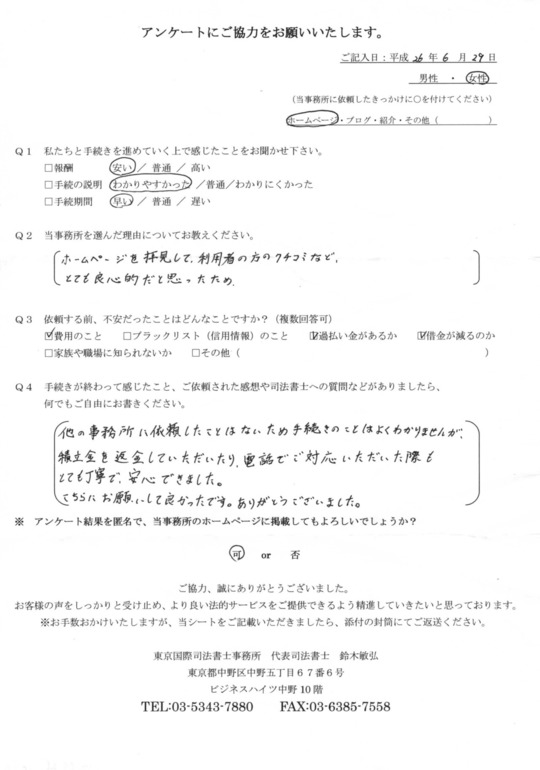 アンケートにご協力をお願いいたします。
ご記入日:平成 26 年 6 月 29 日
男性 ・ 女性
(当事務所に依頼したきっかけに○を付けてください)
ホームページ・ブログ・紹介・その他( )
Q1 私たちと手続きを進めていく上で感じたことをお聞かせ下さい。
□報酬 安い / 普通 / 高い
□手続の説明 わかりやすかった /普通/わかりにくかった
□手続期間 早い / 普通 / 遅い
Q2 当事務所を選んだ理由についてお教えください。
ホームページを拝見して、利用者の方のクチコミなど、
とても良心的だと思ったため。
Q3 依頼する前、不安だったことはどんなことですか?(複数回答可)
☑費用のこと □ブラックリスト(信用情報)のこと ☑過払い金があるか ☑借金が減るのか
□家族や職場に知られないか □その他( )
Q4 手続きが終わって感じたこと、ご依頼された感想や司法書士への質問などがありましたら、
何でもご自由にお書きください。
他の事務所に依頼したことはないため手続きのことはよくわかりませんが、
積立金を返金していただいたり、電話でご対応いただいた際も
とても丁寧で、安心できました。
こちらにお願いして良かったです。ありがとうございました。
※ アンケート結果を匿名で、当事務所のホームページに掲載してもよろしいでしょうか?
可 or 否
ご協力、誠にありがとうございました。
お客様の声をしっかりと受け止め、より良い法的サービスをご提供できるよう精進していきたいと思っております。
※お手数おかけいたしますが、当シートをご記載いただきましたら、添付の封筒にてご返送ください。
東京国際司法書士事務所 代表司法書士 鈴木敏弘
東京都中野区中野五丁目67番6号
ビジネスハイツ中野10階
TEL:03-5343-7880 FAX:03-6385-7558